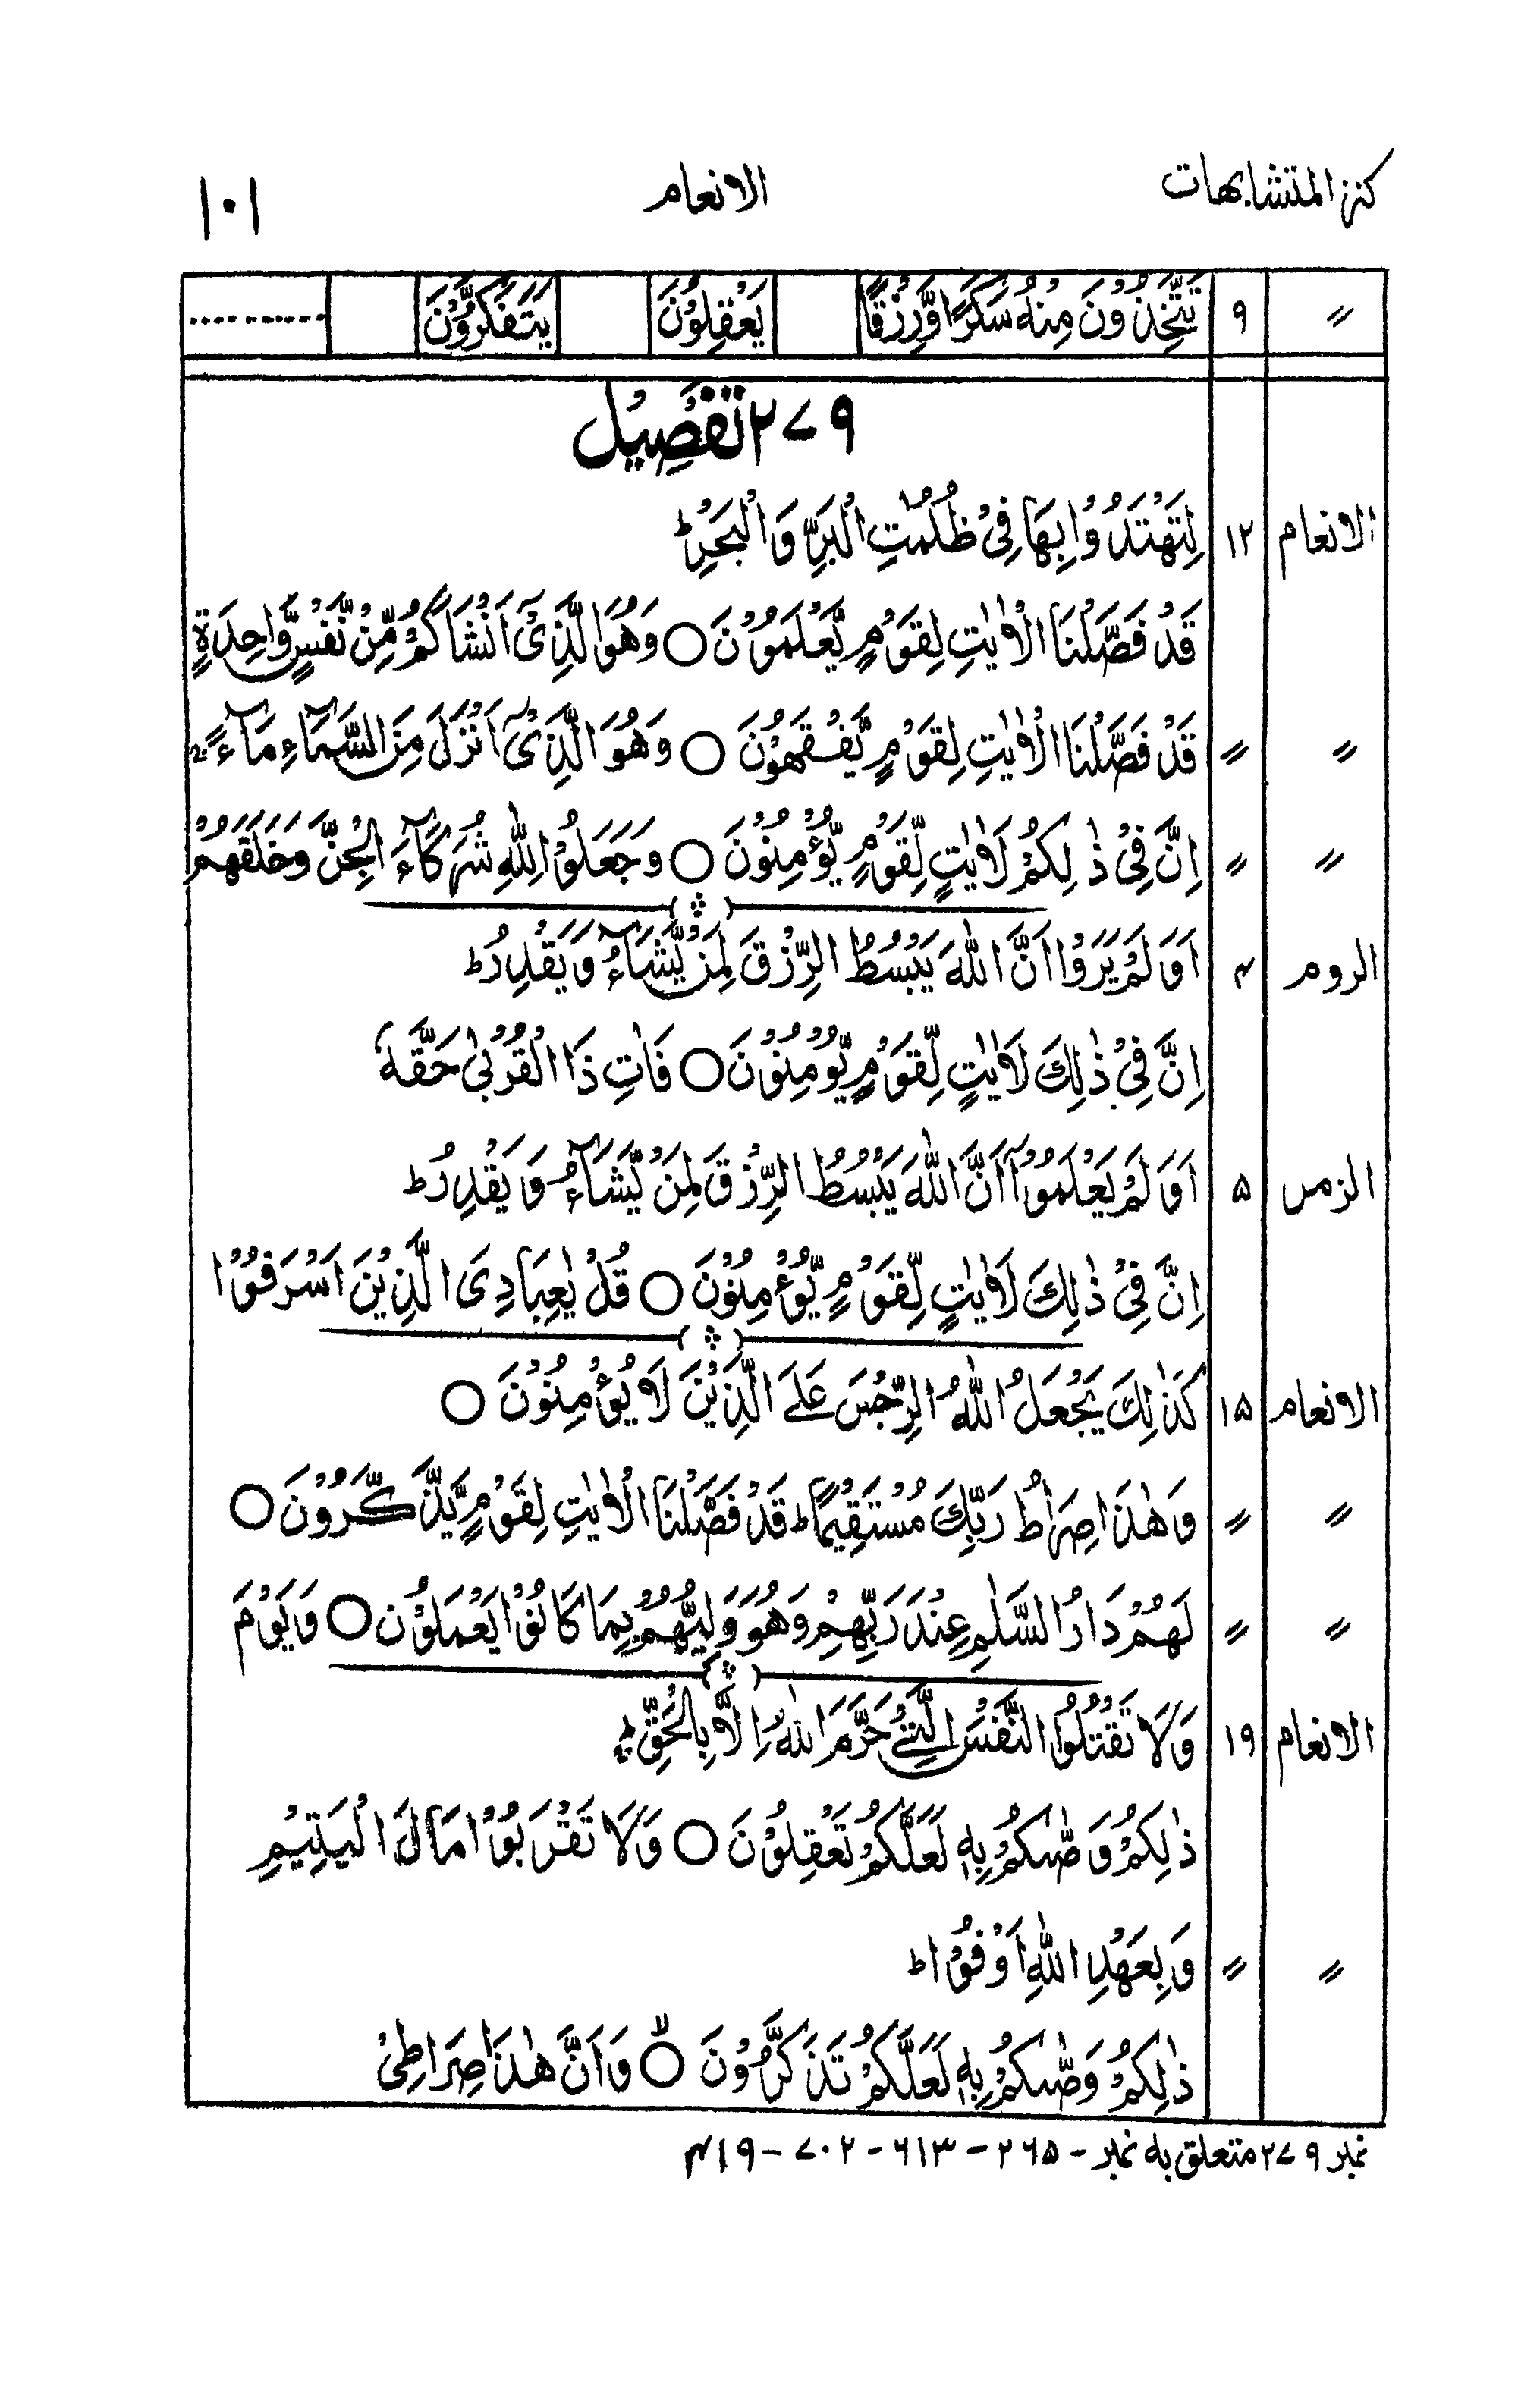 كنز المتشابهات الانعام ١٠١
〃 ٩ تَتَّخِذُوْنَ مِنْهُ سَكَرًا وَّرِزْقًا يَعْقِلُوْنَ يَتَفَكَّرُوْنَ ..........
٢٧٩ تَفْصِيْل
الانعام ١٢ لِتَهْتَدُوْا بِهَا فِيْ ظُلُمٰتِ الْبَرِّ وَالْبَحْرِ ؕ
قَدْ فَصَّلْنَا الْاٰيٰتِ لِقَوْمٍ يَّعْلَمُوْنَ ○ وَهُوَ الَّذِيْٓ اَنْشَاَكُمْ مِّنْ نَّفْسٍ وَّاحِدَةٍ
〃 〃 قَدْ فَصَّلْنَا الْاٰيٰتِ لِقَوْمٍ يَّفْقَهُوْنَ ○ وَهُوَ الَّذِيْٓ اَنْزَلَ مِنَ السَّمَآءِ مَآءً ۚ
〃 〃 اِنَّ فِيْ ذٰلِكُمْ لَاٰيٰتٍ لِّقَوْمٍ يُّؤْمِنُوْنَ ○ وَجَعَلُوْا لِلّٰهِ شُرَكَآءَ الْجِنَّ وَخَلَقَهُمْ
الروم ٤ اَوَلَمْ يَرَوْا اَنَّ اللّٰهَ يَبْسُطُ الرِّزْقَ لِمَنْ يَّشَآءُ وَيَقْدِرُ ؕ
اِنَّ فِيْ ذٰلِكَ لَاٰيٰتٍ لِّقَوْمٍ يُّوْمِنُوْنَ ○ فَاٰتِ ذَا الْقُرْبٰى حَقَّهٗ
الزمر ٥ اَوَلَمْ يَعْلَمُوْٓا اَنَّ اللّٰهَ يَبْسُطُ الرِّزْقَ لِمَنْ يَّشَآءُ وَيَقْدِرُ ؕ
اِنَّ فِيْ ذٰلِكَ لَاٰيٰتٍ لِّقَوْمٍ يُّؤْمِنُوْنَ ○ قُلْ يٰعِبَادِيَ الَّذِيْنَ اَسْرَفُوْا
الانعام ١٥ كَذٰلِكَ يَجْعَلُ اللّٰهُ الرِّجْسَ عَلَى الَّذِيْنَ لَا يُؤْمِنُوْنَ ○
〃 〃 وَهٰذَا صِرَاطُ رَبِّكَ مُسْتَقِيْمًا ؕ قَدْ فَصَّلْنَا الْاٰيٰتِ لِقَوْمٍ يَّذَّكَّرُوْنَ ○
〃 〃 لَهُمْ دَارُ السَّلٰمِ عِنْدَ رَبِّهِمْ وَهُوَ وَلِيُّهُمْ بِمَا كَانُوْا يَعْمَلُوْنَ ○ وَيَوْمَ
الانعام ١٩ وَلَا تَقْتُلُوا النَّفْسَ الَّتِيْ حَرَّمَ اللّٰهُ اِلَّا بِالْحَقِّ ؕ
ذٰلِكُمْ وَصّٰىكُمْ بِهٖ لَعَلَّكُمْ تَعْقِلُوْنَ ○ وَلَا تَقْرَبُوْا مَالَ الْيَتِيْمِ
〃 〃 وَبِعَهْدِ اللّٰهِ اَوْفُوْا ؕ
ذٰلِكُمْ وَصّٰىكُمْ بِهٖ لَعَلَّكُمْ تَذَكَّرُوْنَ ○ۙ وَاَنَّ هٰذَا صِرَاطِيْ
نمبر ٢٧٩ متعلق به نمبر - ٢٦٥ - ٦١٣ - ٧٠٢ - ٤١٩